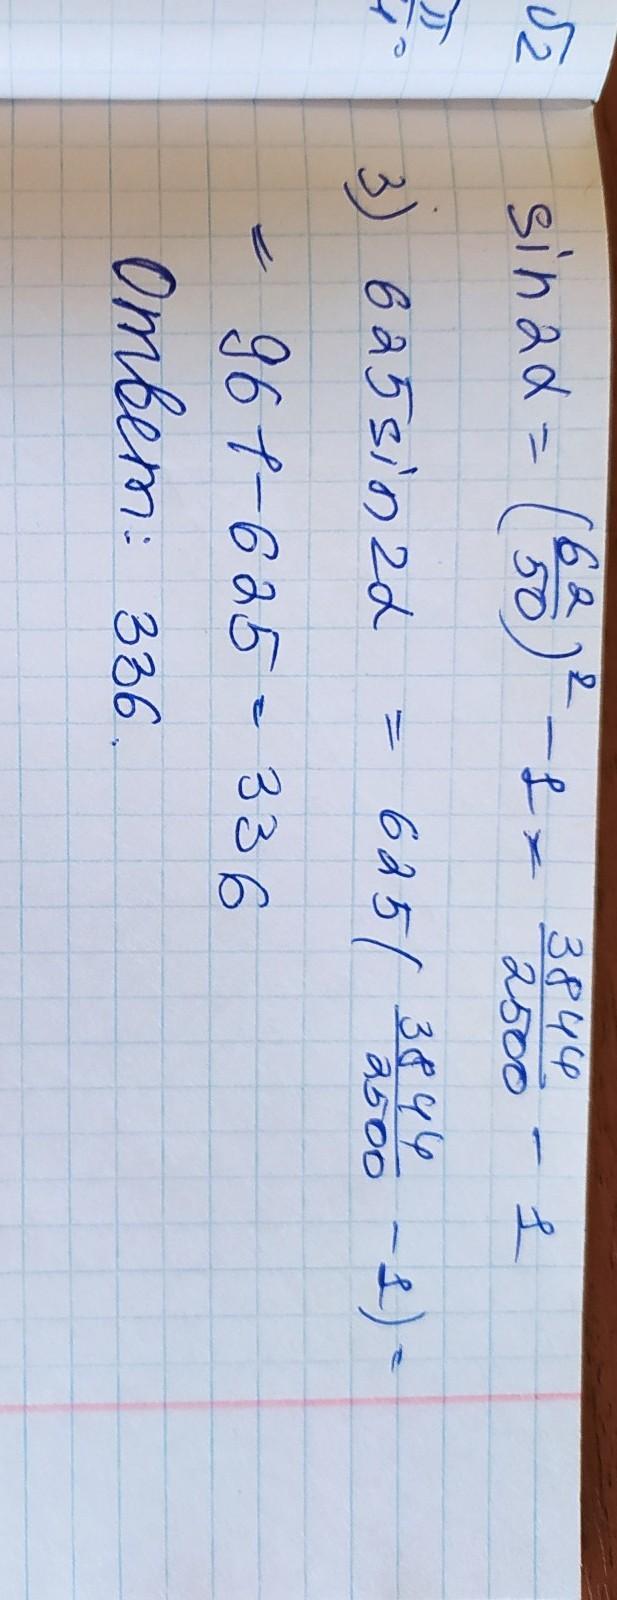 √2
π
sin2α = (62/50)² - 1 = 3844/2500 - 1
3) 625sin2α = 625(3844/2500 - 1) =
= 961 - 625 = 336
Ответ: 336.